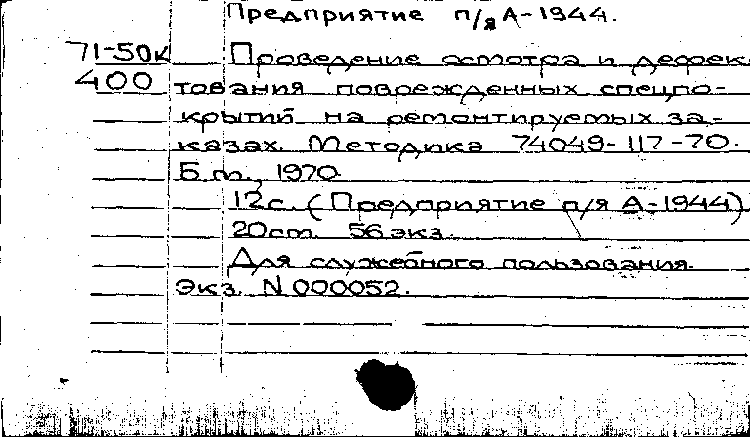 Предприятие п/я А-1944.
71-50к Проведение осмотра и дефек-
400 тования поврежденных спецпо-
крытий на ремонтируемых за-
казах. Методика 74049-117-70.
Б.м., 1970.
12с. (Предприятие п/я А-1944)
20см. 56 экз.
Для служебного пользования.
Экз. N 000052.